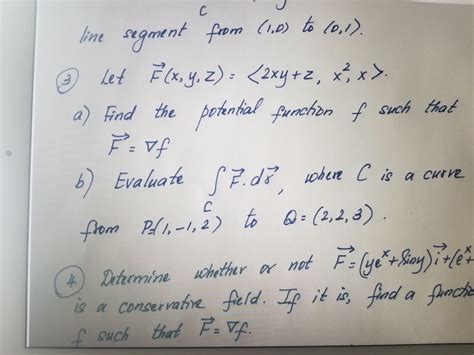 C
line segment from (1,0) to (0,1).
③ Let F⃗(x,y,z) = <2xy+z, x², x>.
a) Find the potential function f such that
F⃗ = ∇f
b) Evaluate ∫ F⃗.dr⃗, where C is a curve
C
from P=(1,-1,2) to Q=(2,2,3).
④ Determine whether or not F⃗=(yeˣ+Siny)i⃗+(eˣ+
is a conservative field. If it is, find a functi
f such that F⃗=∇f.